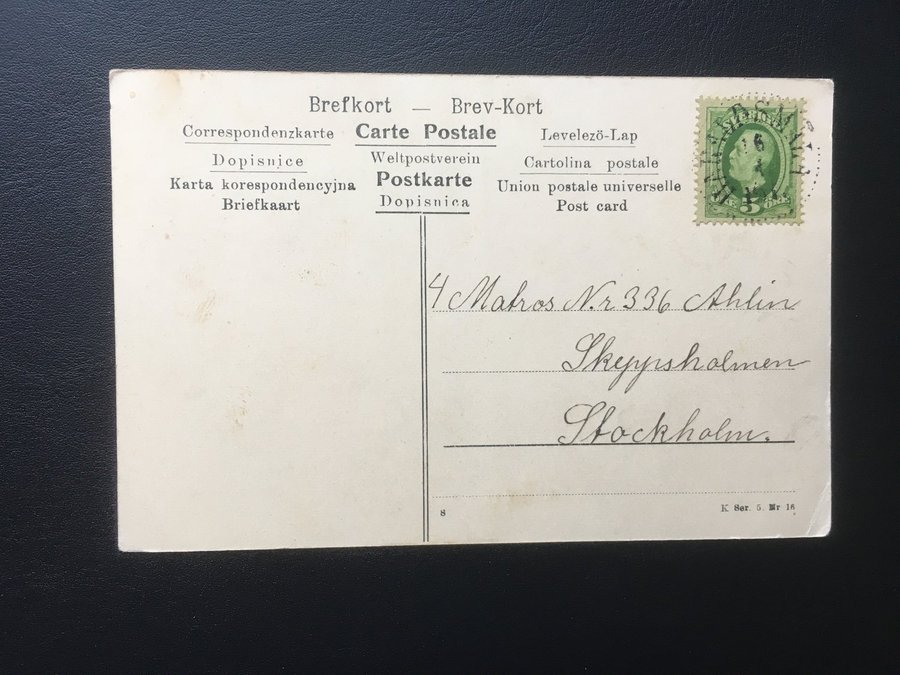 Brefkort — Brev-Kort
Correspondenzkarte Carte Postale Levelezö-Lap
Dopisnice Weltpostverein Cartolina postale
Karta korespondencyjna Postkarte Union postale universelle
Briefkaart Dopisnica Post card
16
5
4 Matros N.r 336 Ahlin
Skeppsholmen
Stockholm.
8 K Ser. 5. Nr 16